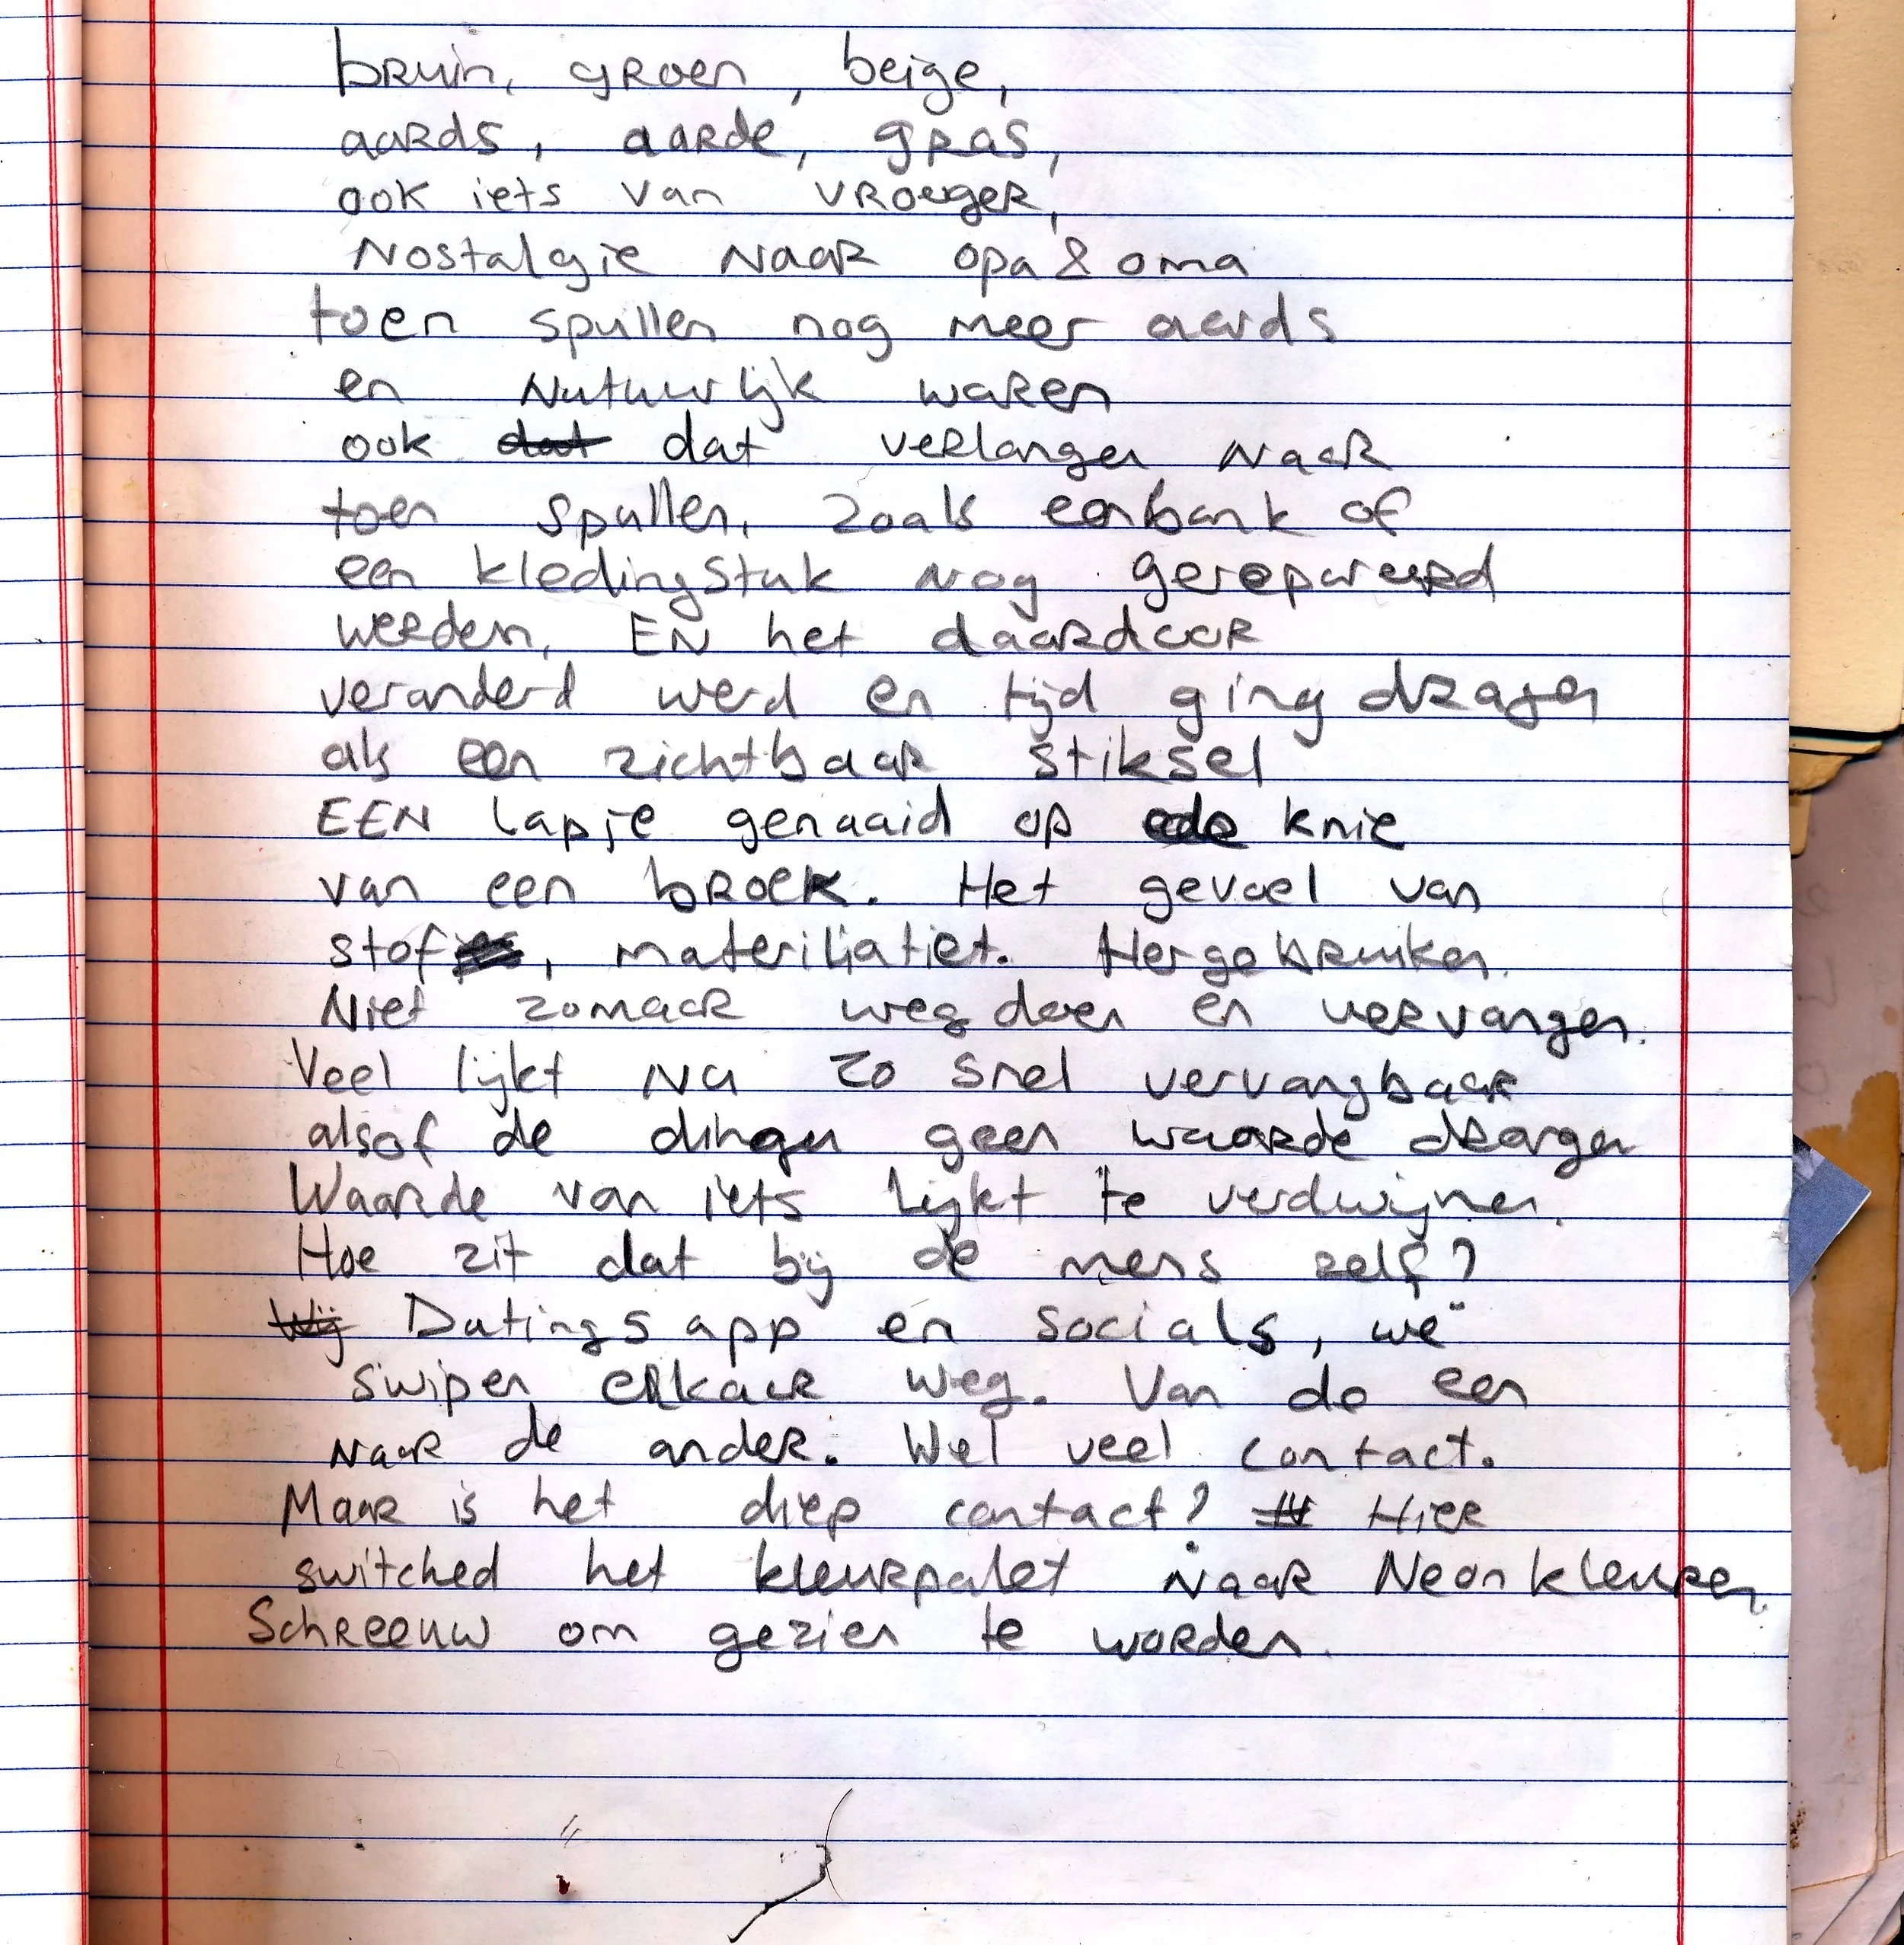 bruin, groen, beige,
aards, aarde, gras,
ook iets van vroeger,
Nostalgie naar opa & oma
toen spullen nog meer aards
en Natuurlijk waren
ook dat dat verlangen naar
toen spullen, zoals een bank of
een kledingstuk nog gerepareerd
werden, EN het daardoor
veranderd werd en tijd ging dragen
als een zichtbaar stiksel
EEN lapje genaaid op de knie
van een broek. Het gevoel van
stof, materiliatiet. Hergebruiken.
Niet zomaar weg doen en vervangen.
Veel lijkt nu zo snel vervangbaar
alsof de dingen geen waarde dragen
Waarde van iets lijkt te verdwijnen.
Hoe zit dat bij de mens zelf?
Wij Datings app en socials, we
swipen elkaar weg. Van de een
naar de ander. Wel veel contact.
Maar is het diep contact? Hier
switched het kleurpalet naar Neon kleuren.
Schreeuw om gezien te worden.